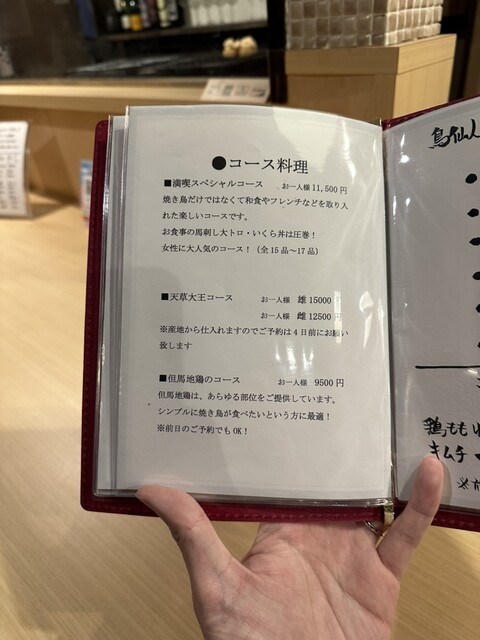 ●コース料理
■満喫スペシャルコース お一人様 11,500円
焼き鳥だけではなくて和食やフレンチなどを取り入
れた楽しいコースです。
お食事の馬刺し大トロ・いくら丼は圧巻！
女性に大人気のコース！（全15品～17品）
■天草大王コース お一人様 雄 15000円
お一人様 雌 12500円
※産地から仕入れますのでご予約は4日前にお願い
致します
■但馬地鶏のコース お一人様 9500円
但馬地鶏は、あらゆる部位をご提供しています。
シンプルに焼き鳥が食べたいという方に最適！
※前日のご予約でもOK！
鳥仙人
鶏もも
キムチ